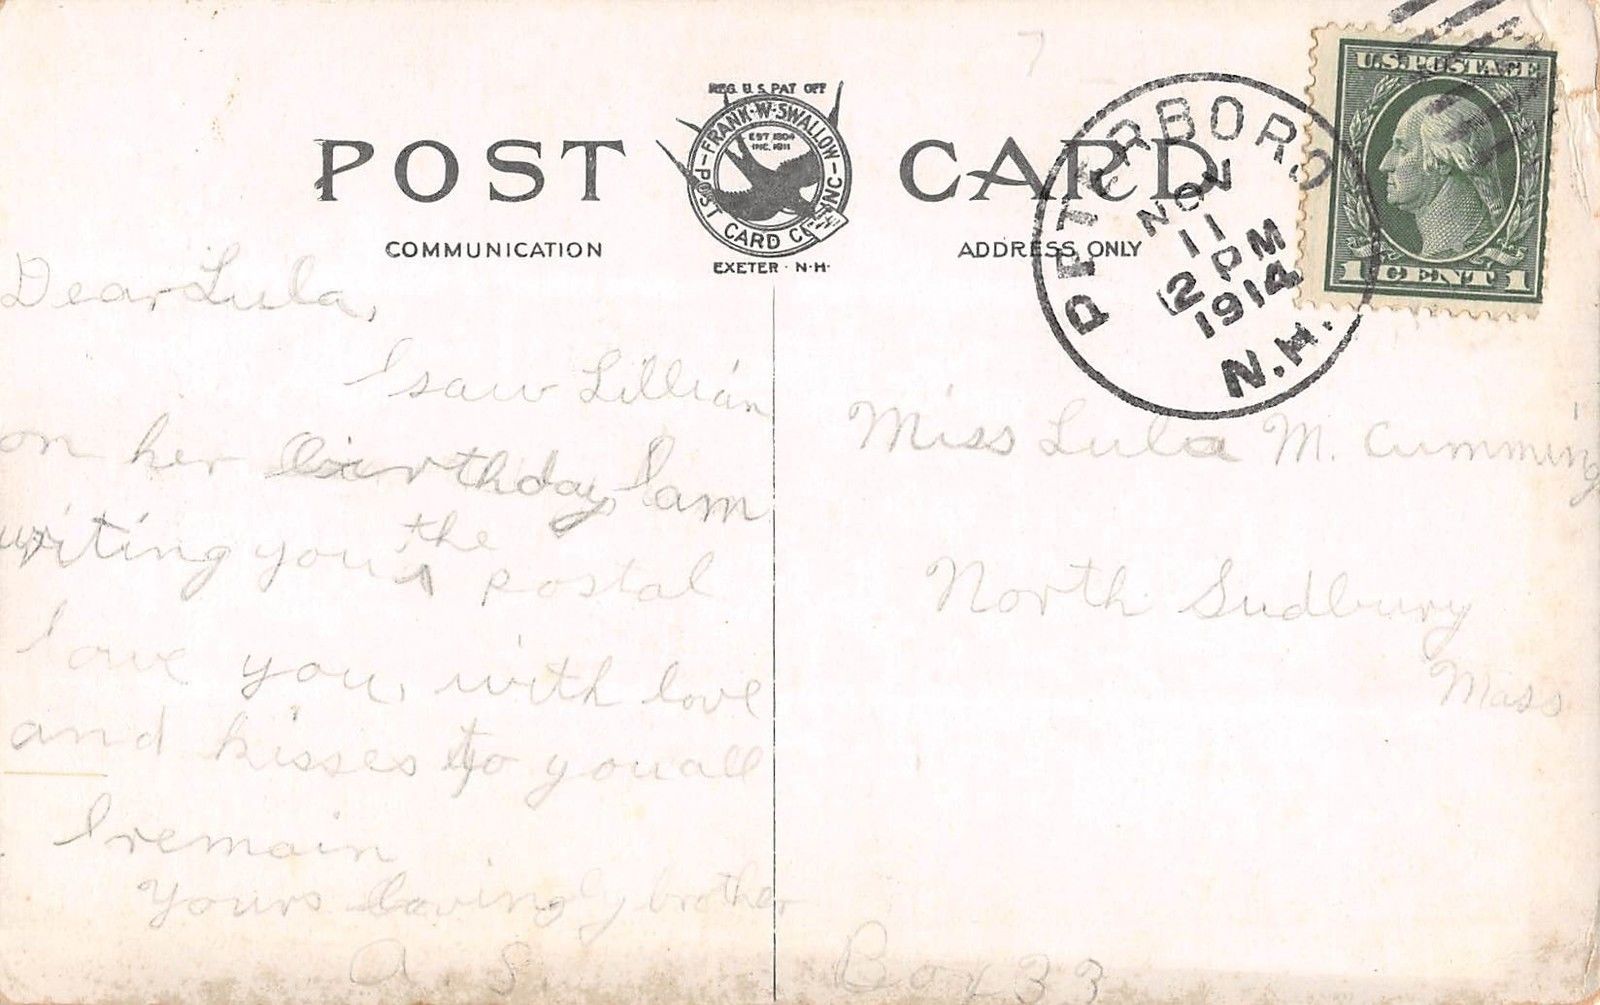 REG. U.S. PAT OFF
FRANK·W·SWALLOW
POST CARD CO. INC.
EST 1904
INC. 1911
EXETER · N·H·
POST CARD
COMMUNICATION
ADDRESS ONLY
PETERBORO
NOV
11
12 PM
1914
N.H.
U.S. POSTAGE
1 CENT 1
Dear Lula,
I saw Lillian
on her birthday, I am
writing you the postal
love you, with love
and kisses to you all
I remain
yours lovingly brother
A. S.
Miss Lula M. Cumming
North Sudbury
Mass
Box 33